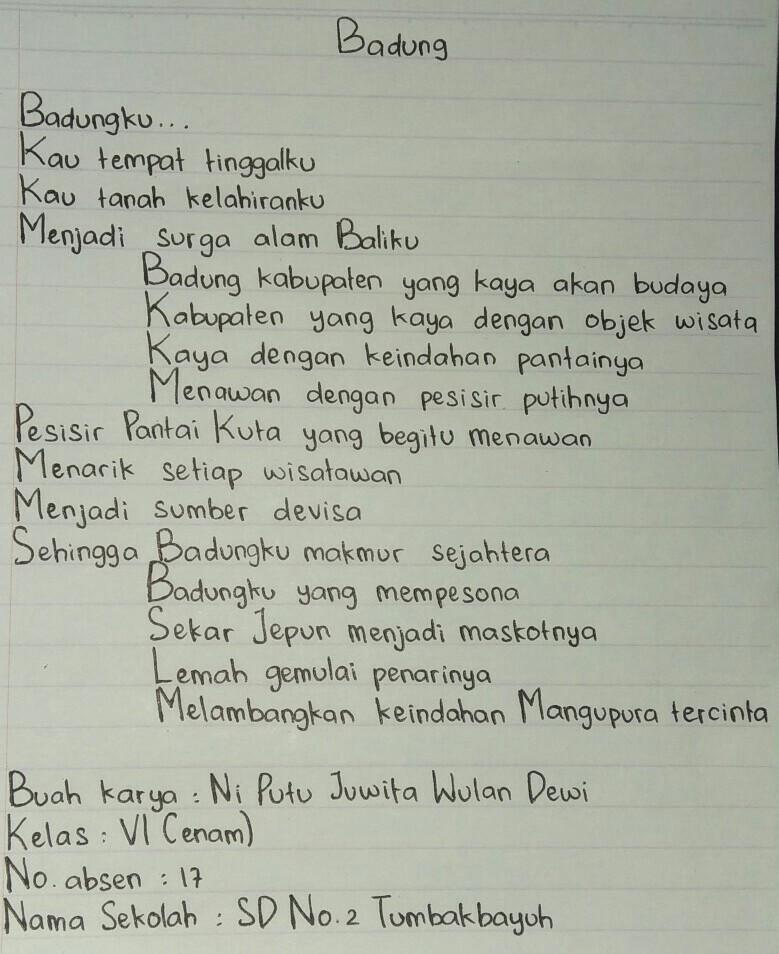 Badung
Badungku...
Kau tempat tinggalku
Kau tanah kelahiranku
Menjadi surga alam Baliku
Badung kabupaten yang kaya akan budaya
Kabupaten yang kaya dengan objek wisata
Kaya dengan keindahan pantainya
Menawan dengan pesisir putihnya
Pesisir Pantai Kuta yang begitu menawan
Menarik setiap wisatawan
Menjadi sumber devisa
Sehingga Badungku makmur sejahtera
Badungku yang mempesona
Sekar Jepun menjadi maskotnya
Lemah gemulai penarinya
Melambangkan keindahan Mangupura tercinta
Buah karya : Ni Putu Juwita Wulan Dewi
Kelas : VI (enam)
No. absen : 17
Nama Sekolah : SD No.2 Tumbakbayuh